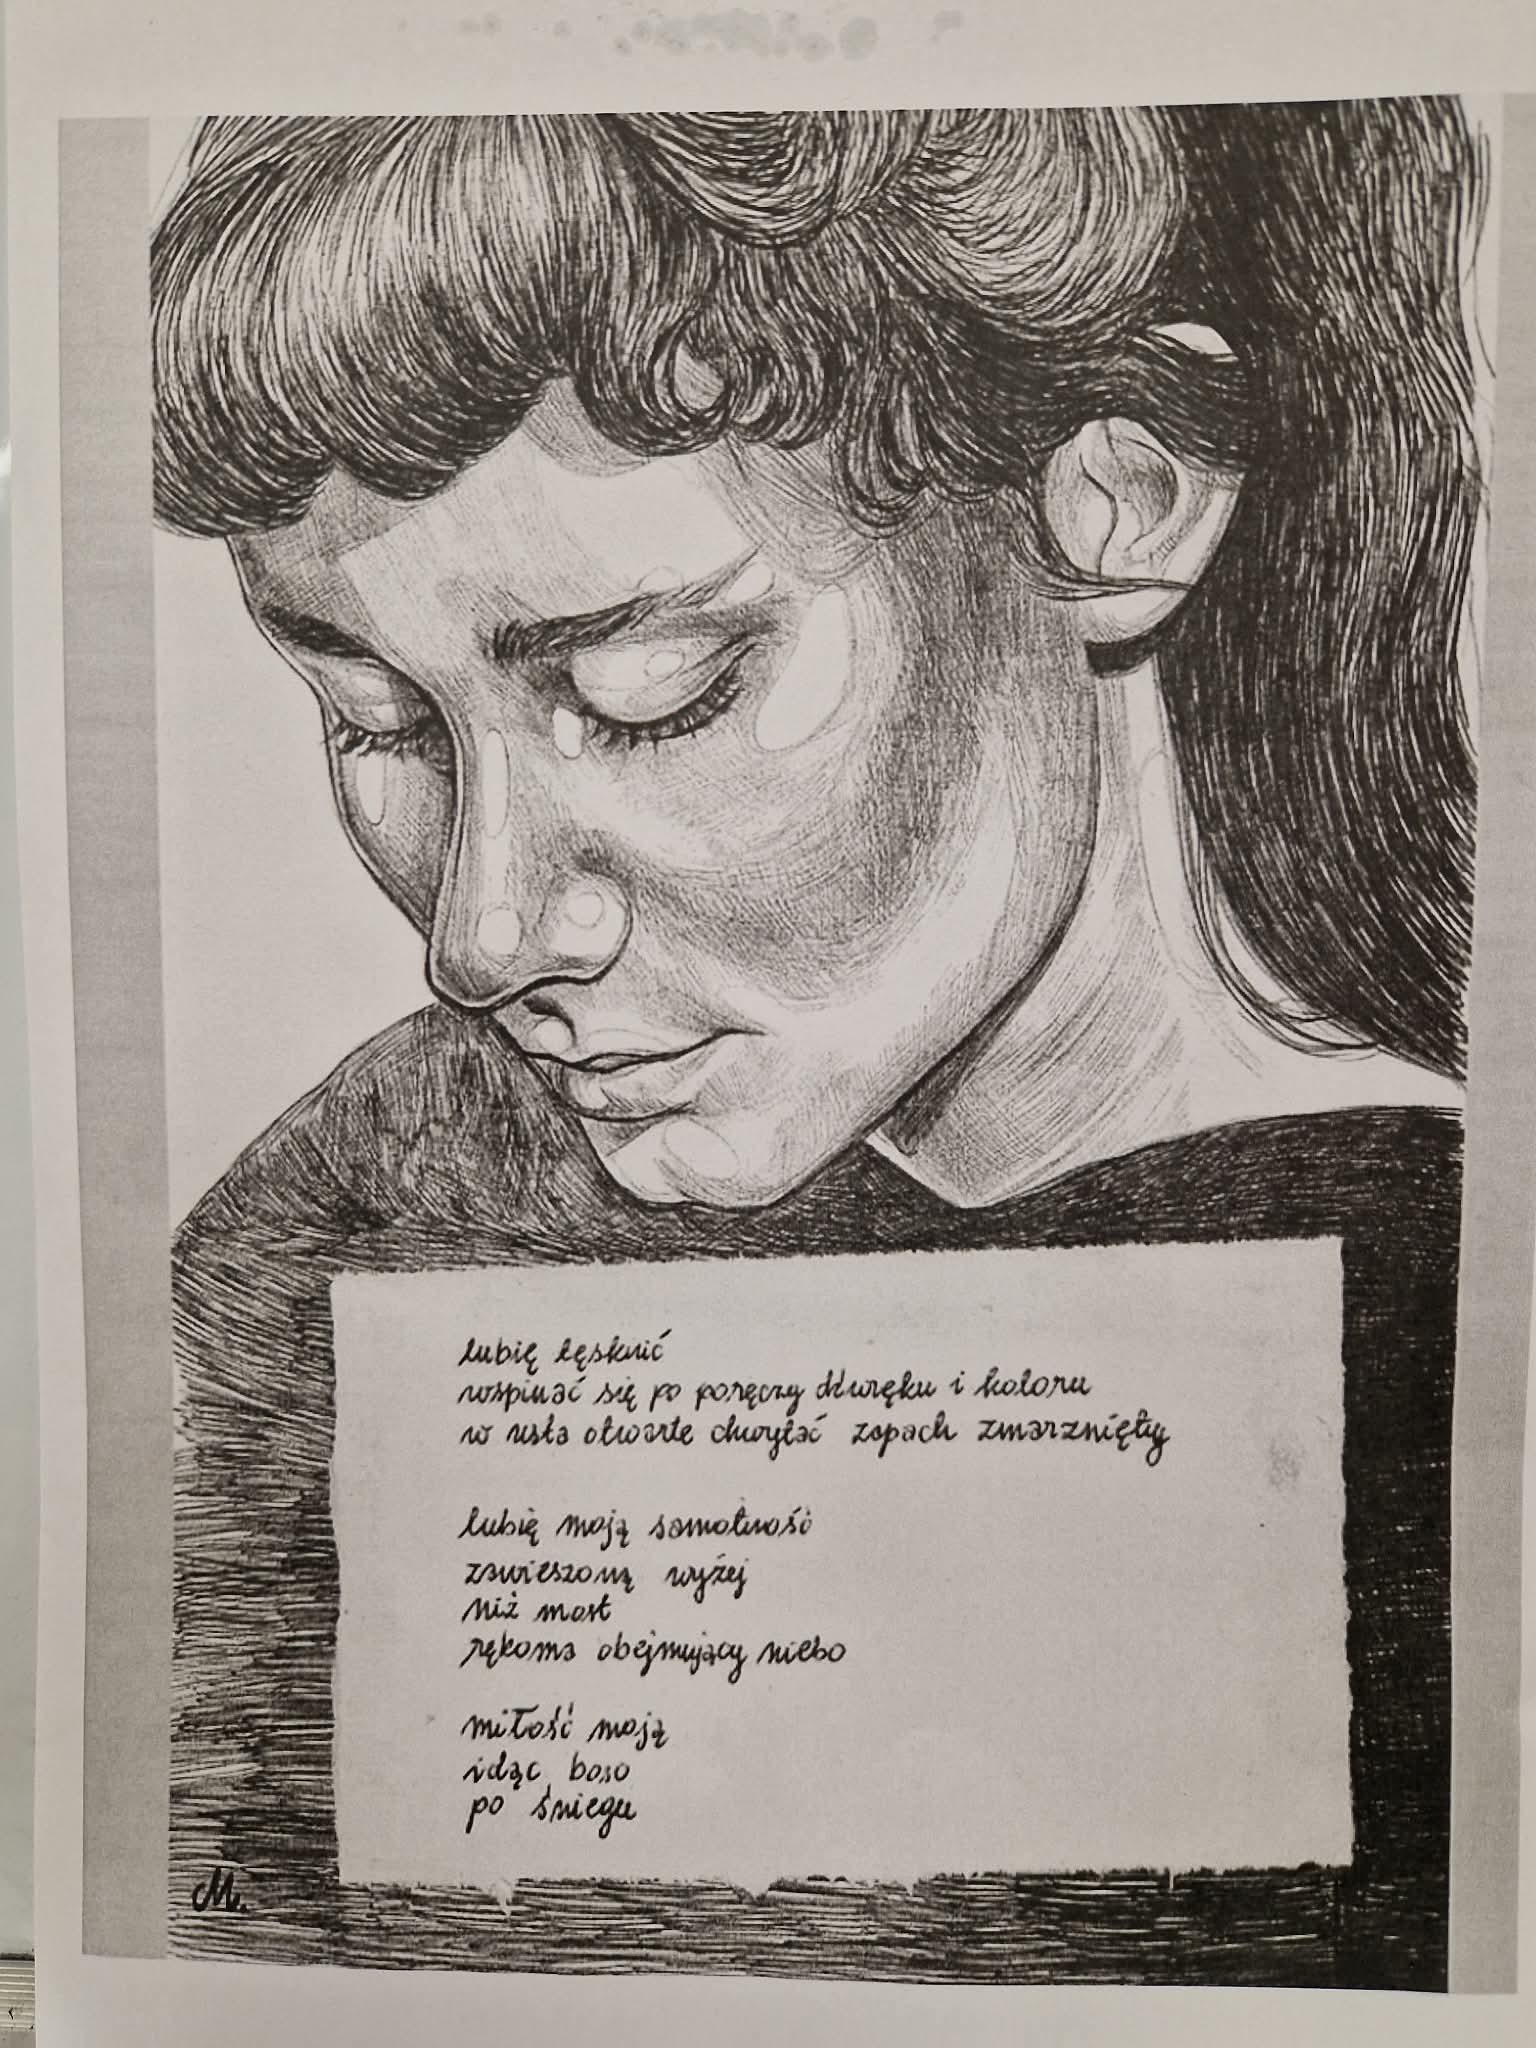 lubię tęsknić
wspinać się po poręczy dźwięku i koloru
w usta otwarte chwytać zapach zmarznięty
lubię moją samotność
zawieszoną wyżej
niż most
rękoma obejmujący niebo
miłość moją
idąc boso
po śniegu
M.